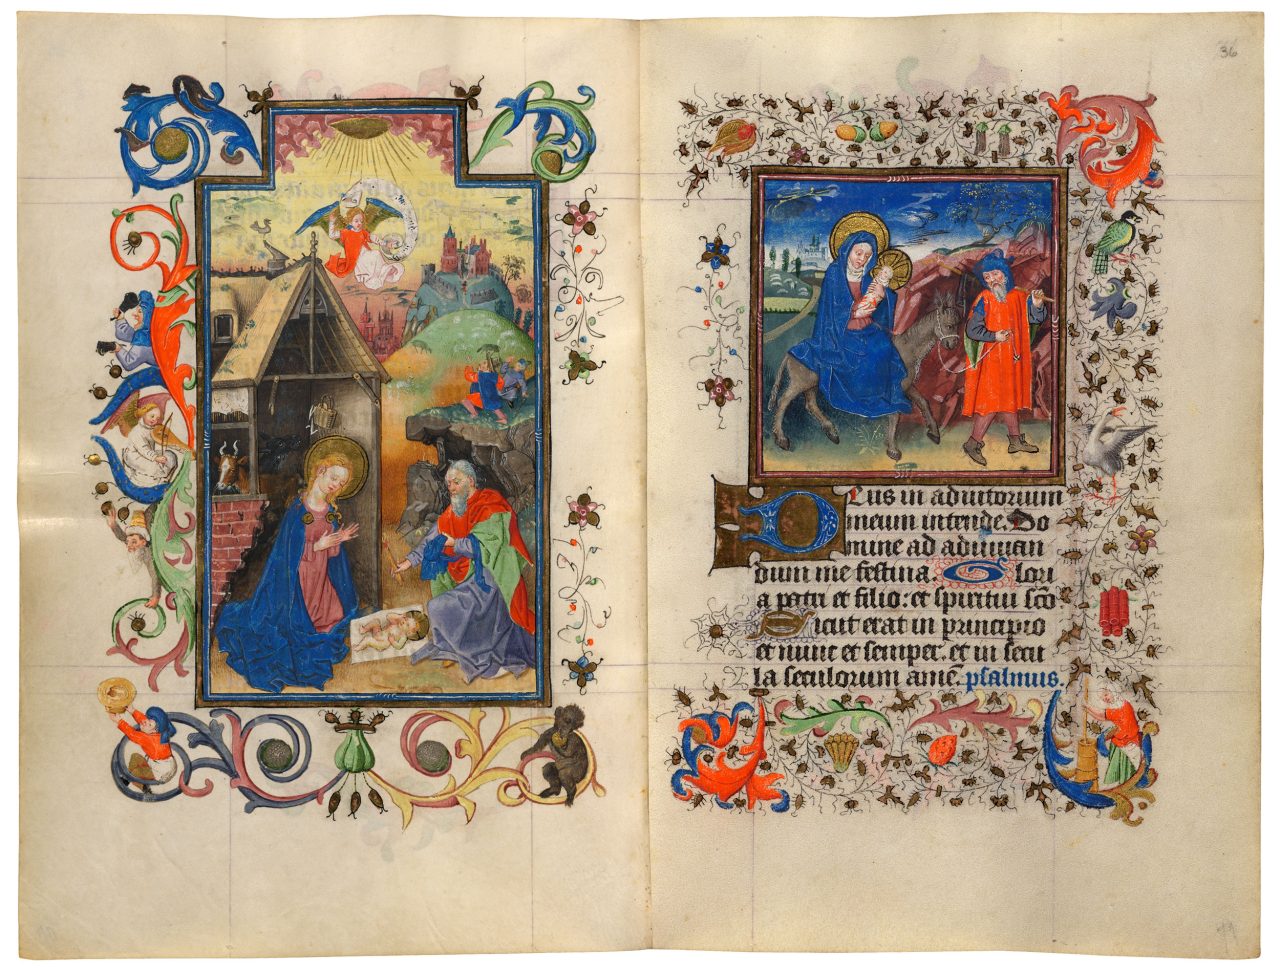 36
Deus in adiutorium
meum intende. Do
mine ad adiuuan
dum me festina. Glori
a patri et filio: et spiritui sco.
Sicut erat in principio
et nunc et semper. et in secu
la seculorum ame. psalmus.